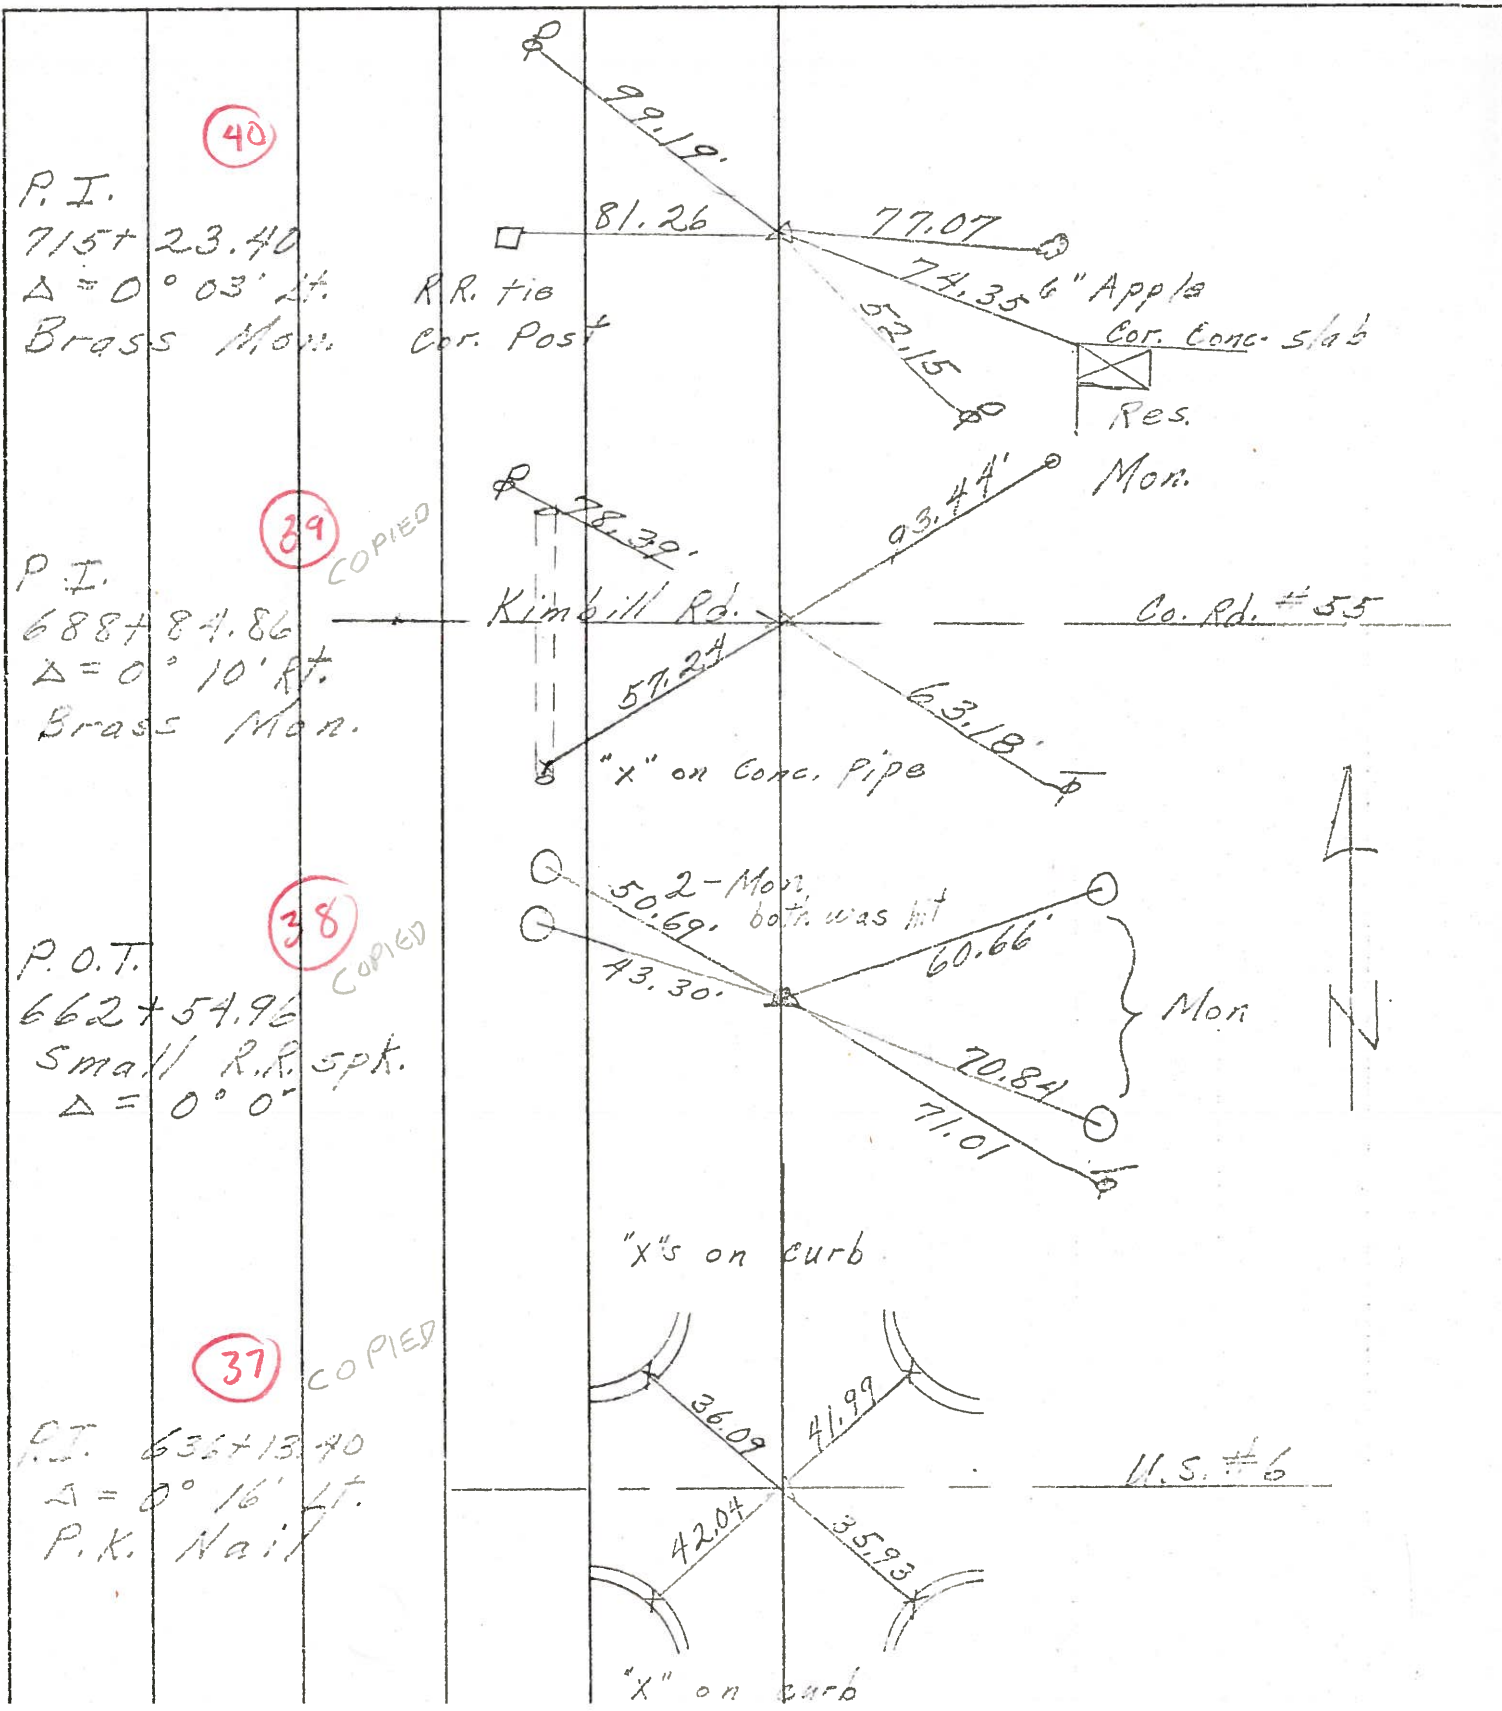 40
P.I.
715+23.40
Δ = 0° 03' Lt.
Brass Mon.
99.19'
81.26
77.07
R.R. tie
Cor. Post
74.35
6" Apple
Cor. Conc. slab
52.15
Res.
39
COPIED
P.I.
688+84.86
Δ = 0° 10' Rt.
Brass Mon.
78.39'
93.44'
Mon.
Kimbill Rd.
Co. Rd. #55
57.24
63.18'
"X" on Conc. Pipe
38
COPIED
P.O.T.
662+54.96
Small R.R. spk.
Δ = 0° 0"
2-Mon.
both was hit
50.69'
43.30'
60.66'
Mon
70.84
71.01
N
"X"s on curb
37
COPIED
P.I. 636+13.40
Δ = 0° 16' Lt.
P.K. Nail
36.09
41.99
U.S. #6
42.04
35.93
"X" on curb